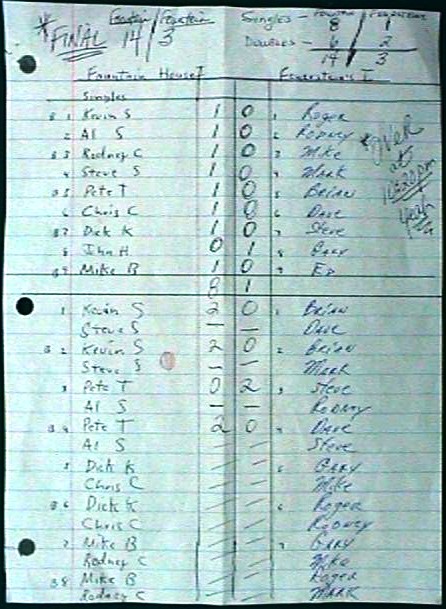 *FINAL Fountain 14 / 3
Singles - 8 1
Doubles - 6 2
14 3
Fountain House I
Singles
B 1 Kevin S 1 0 1 Roger
2 Al S 1 0 2 Rodney
B 3 Rodney C 1 0 3 Mike
4 Steve S 1 0 4 Mark
B 5 Pete T 1 0 5 Brian
6 Chris C 1 0 6 Dave
B 7 Dick K 1 0 7 Steve
8 John H 0 1 8 Gary
B 9 Mike B 1 0 9 Ed
8 1
*OVER
at
10:20pm
Yeah
1 Kevin S 2 0 1 Brian
Steve S — — Dave
B 2 Kevin S 2 0 2 Brian
Steve S — — Mark
3 Pete T 0 2 3 Steve
Al S — — Rodney
B 4 Pete T 2 0 4 Dave
Al S Steve
5 Dick K 5 Gary
Chris C Mike
B 6 Dick K 6 Roger
Chris C Rodney
7 Mike B 7 Gary
Rodney C Mike
B 8 Mike B Roger
Rodney C Mark